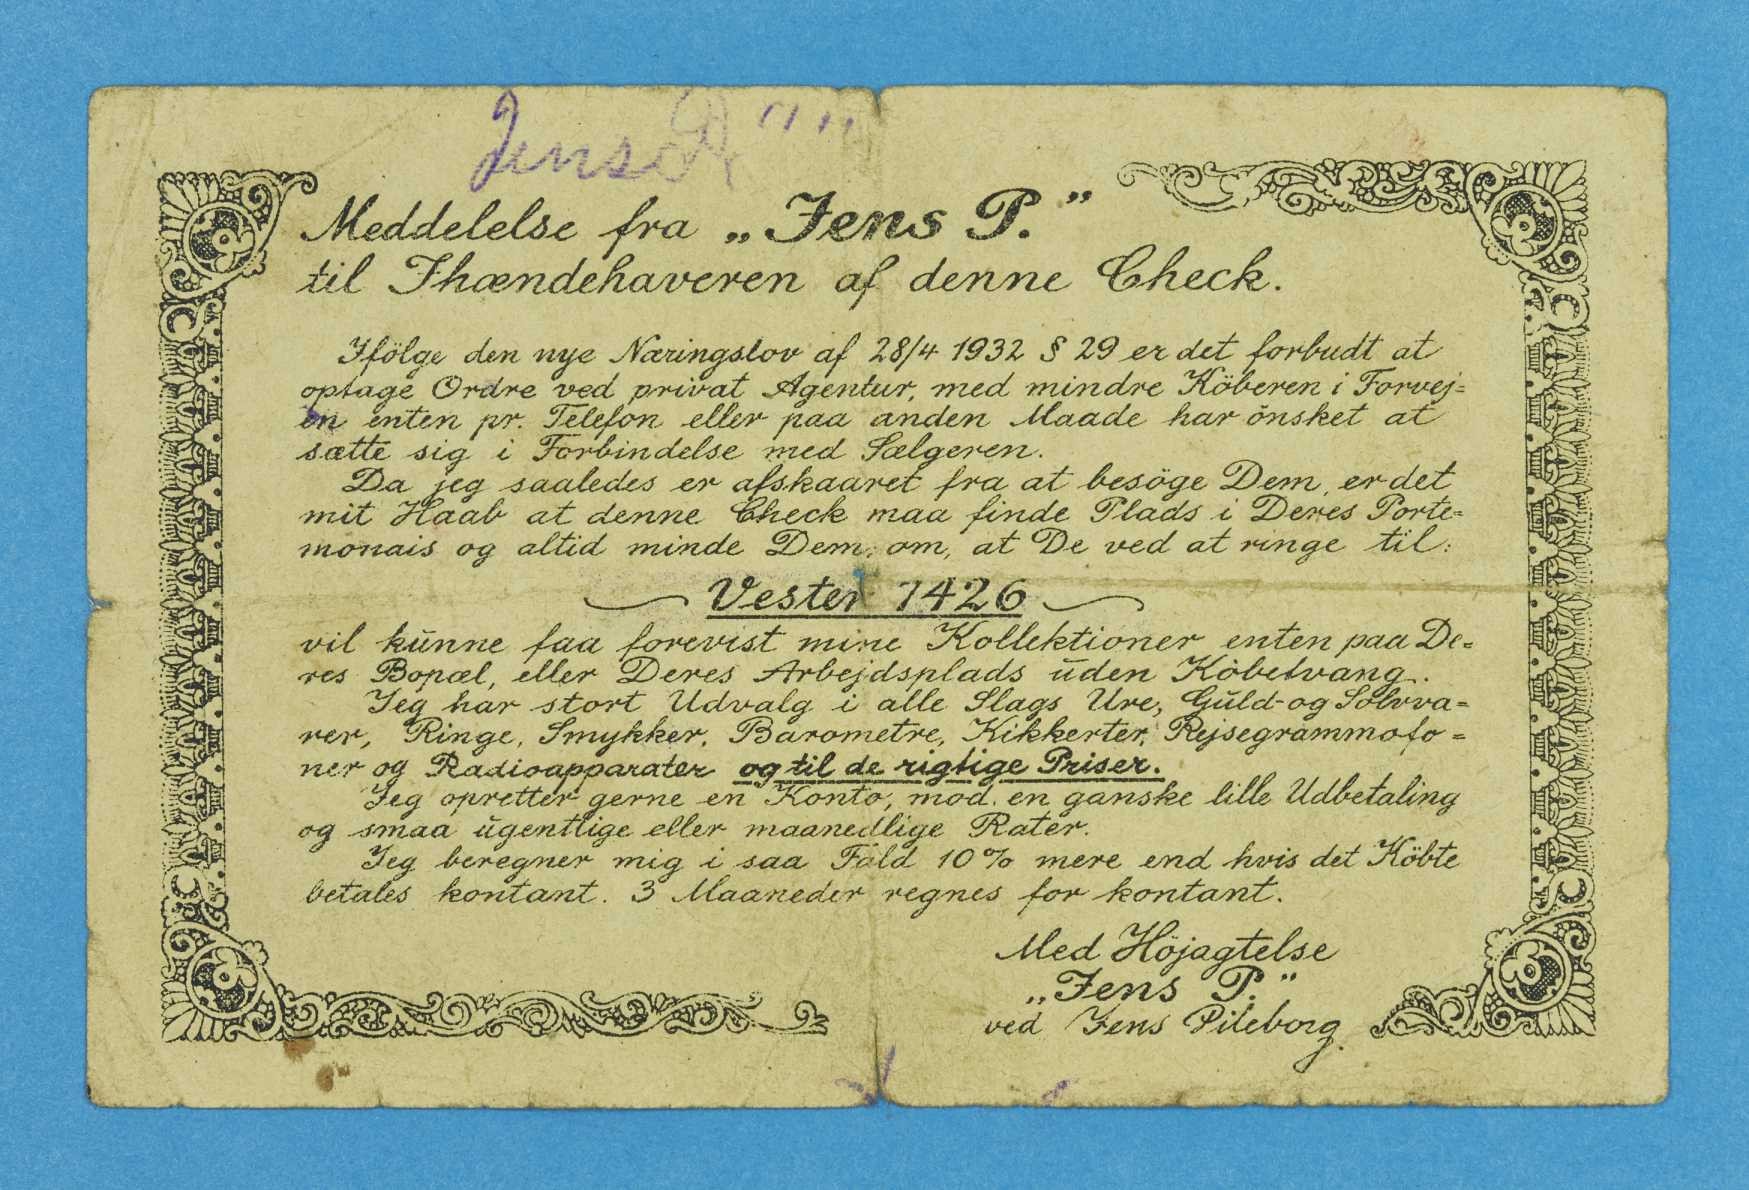 Jens P. " "
Meddelelse fra „Jens P.”
til Ihændehaveren af denne Check.
Ifölge den nye Næringslov af 28/4 1932 § 29 er det forbudt at
optage Ordre ved privat Agentur, med mindre Köberen i Forvej=
en enten pr. Telefon eller paa anden Maade har önsket at
sætte sig i Forbindelse med Sælgeren.
Da jeg saaledes er afskaaret fra at besöge Dem, er det
mit Haab at denne Check maa finde Plads i Deres Porte=
monais og altid minde Dem om, at De ved at ringe til:
Vester 7426
vil kunne faa forevist mine Kollektioner enten paa De=
res Bopæl, eller Deres Arbejdsplads uden Köbetvang.
Jeg har stort Udvalg i alle Slags Ure, Guld- og Sölvva=
rer, Ringe, Smykker, Barometre, Kikkerter, Rejsegrammofo=
ner og Radioapparater og til de rigtige Priser.
Jeg opretter gerne en Konto, mod en ganske lille Udbetaling
og smaa ugentlige eller maanedlige Rater.
Jeg beregner mig i saa Fald 10% mere end hvis det Köbte
betales kontant. 3 Maaneder regnes for kontant.
Med Höjagtelse
„Jens P.”
ved Jens Pileborg.